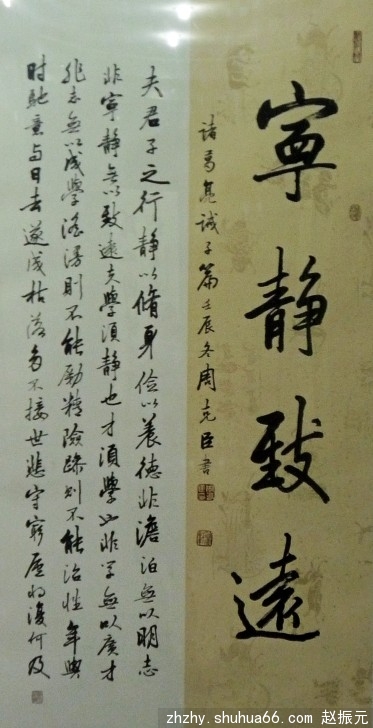 寧静致遠
諸葛亮誡子篇壬辰冬周克臣書
夫君子之行静以脩身儉以養德非澹泊無以明志
非寧静无以致遠夫學須静也才須學也非学無以廣才
非志無以成學滛漫則不能勵精險躁則不能治性年與
时馳意与日去遂成枯落多不接世悲守窮廬将復何及
zhzhy.shuhua66.com 赵振元